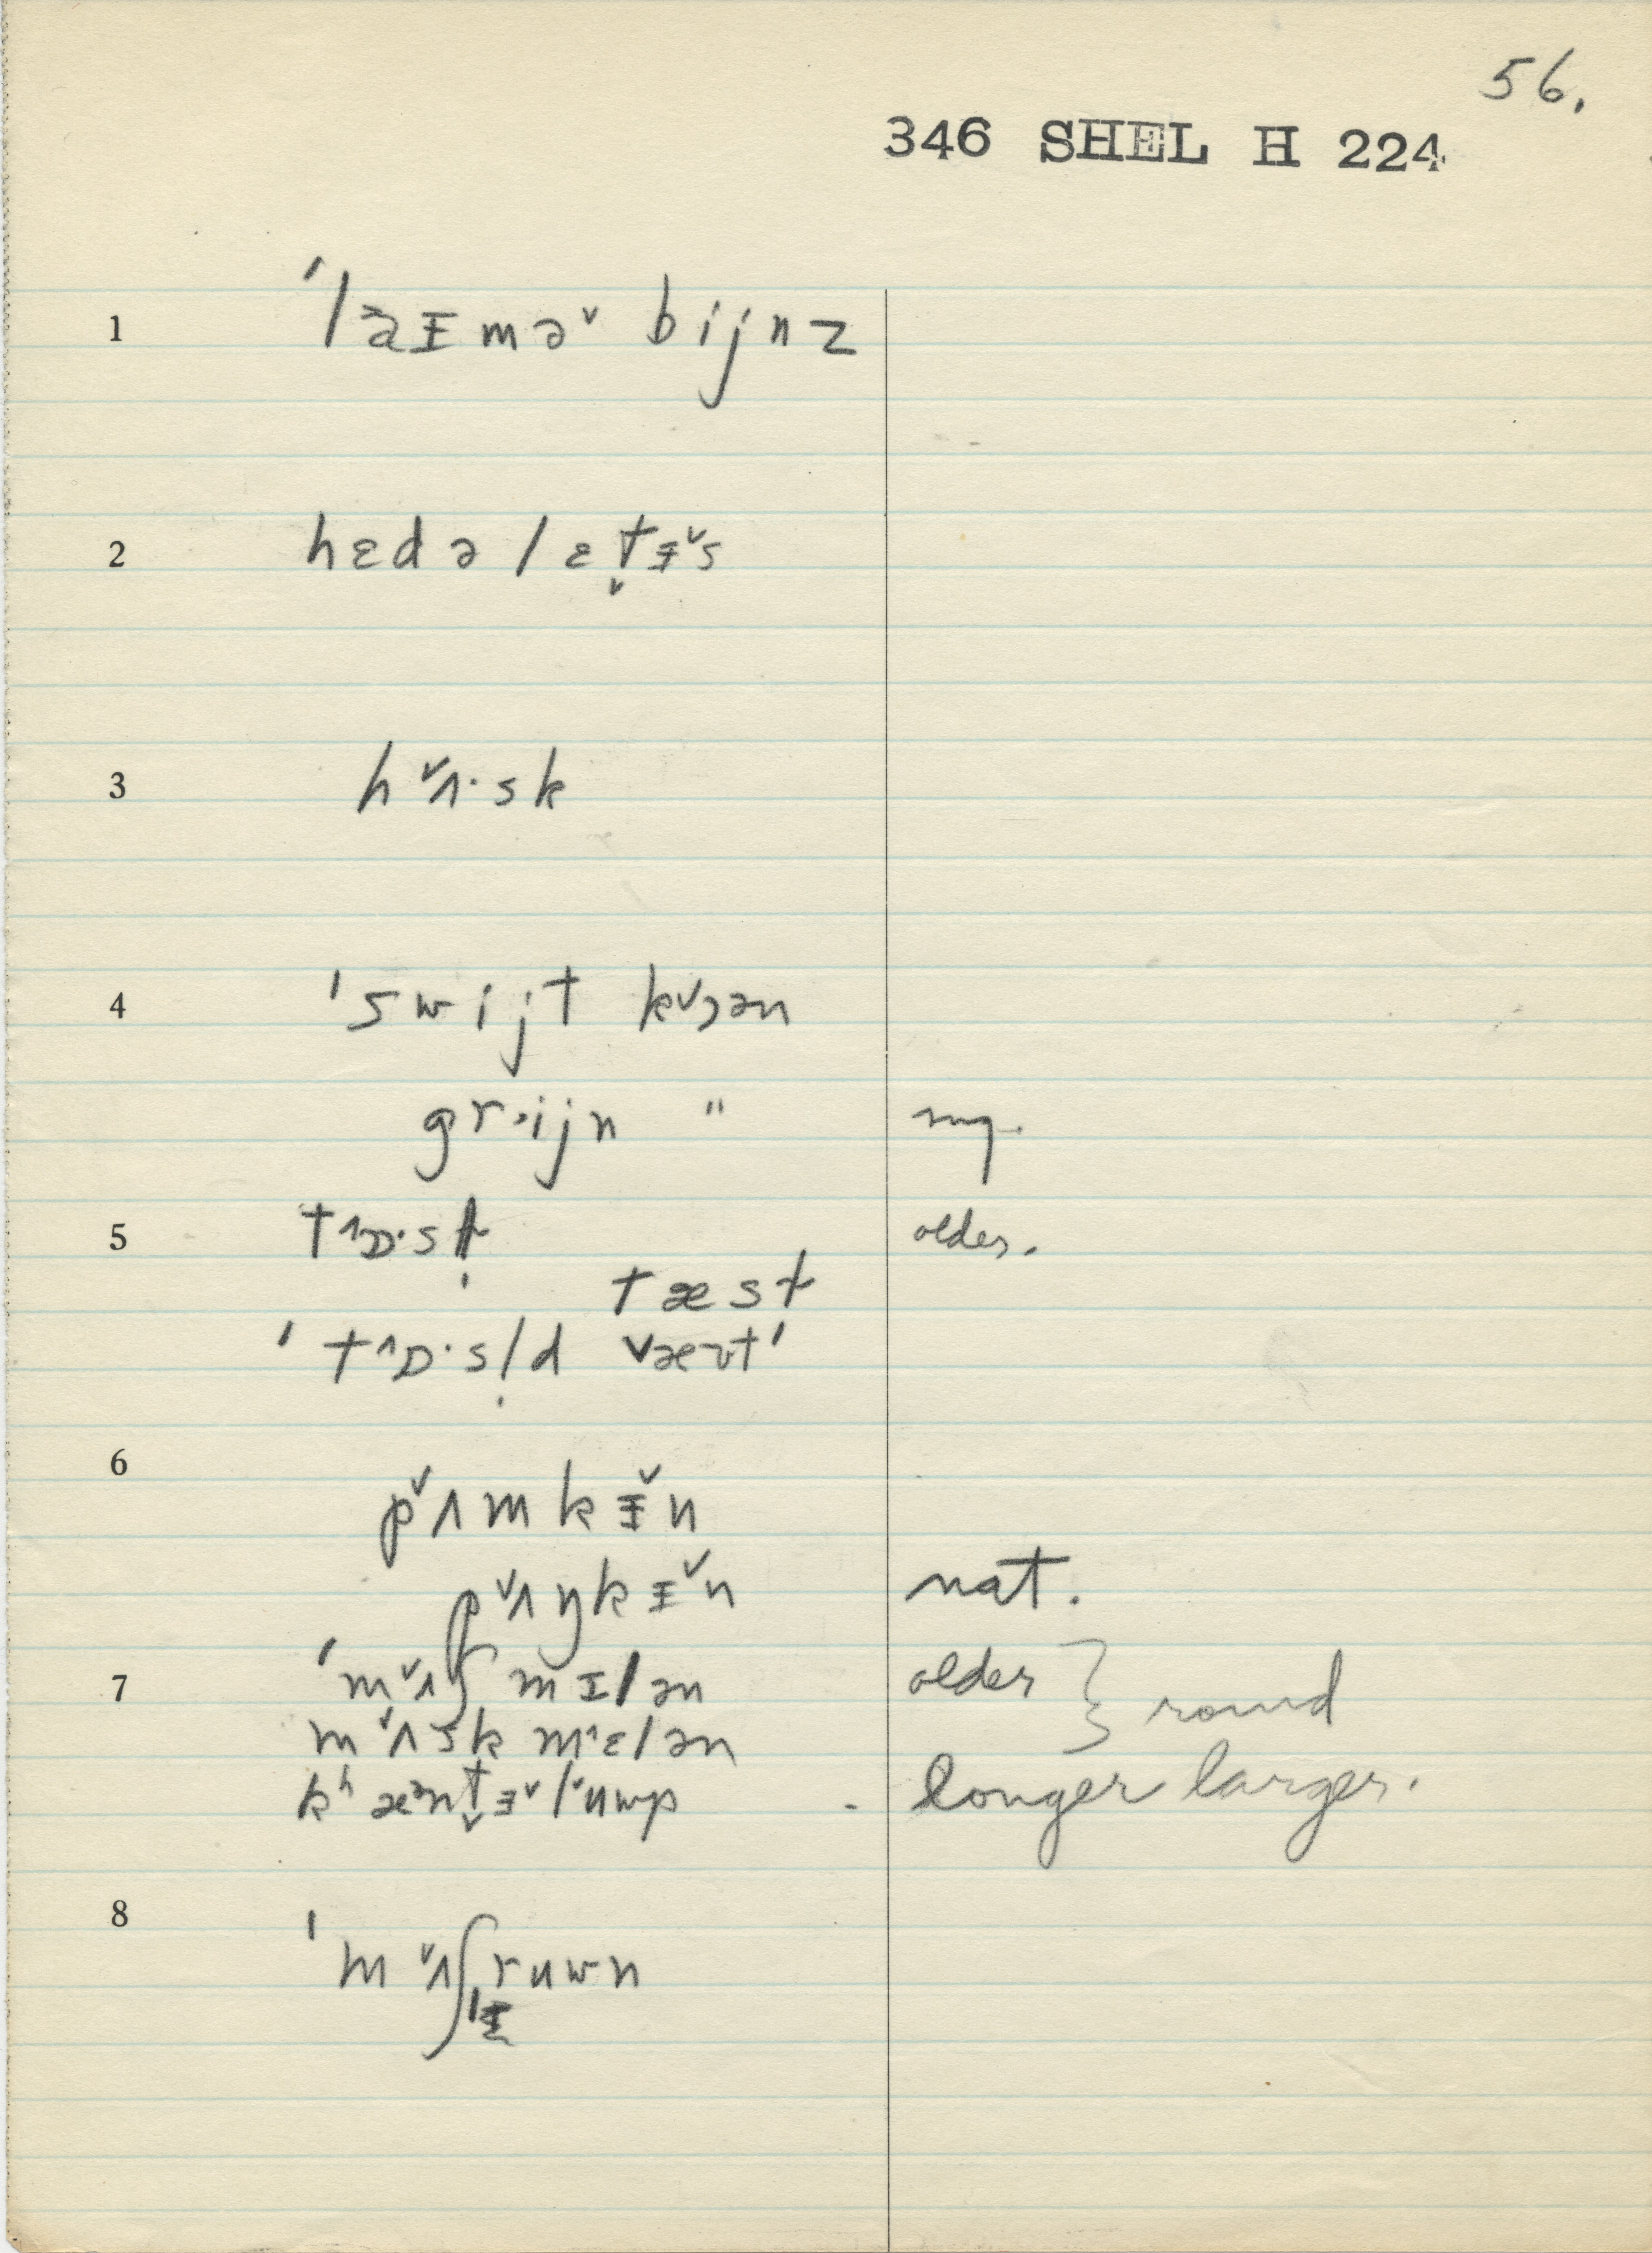 56.
346 SHEL H 224
1 ˈlaɪmə˅ bijnz
2 hɛdəlɛt̬ɨ˅s
3 h˅ʌ·sk
4 ˈswijt k˅ɔən
gr›ijn "
5 t^ɒ·sḷt older.
tæst
ˈt^ɒ·sḷd ˅æʊtˈ
6 p˅ʌmkɨ˅n
p˅ʌŋkɨ˅n nat.
7 ˈm˅ʌʃmɪlən older } round
m˅ʌskm^ɛlən
kʰæᵊnt̬ɨ˅l˅uwp - longer larger.
8 ˈm˅ʌʃruwn